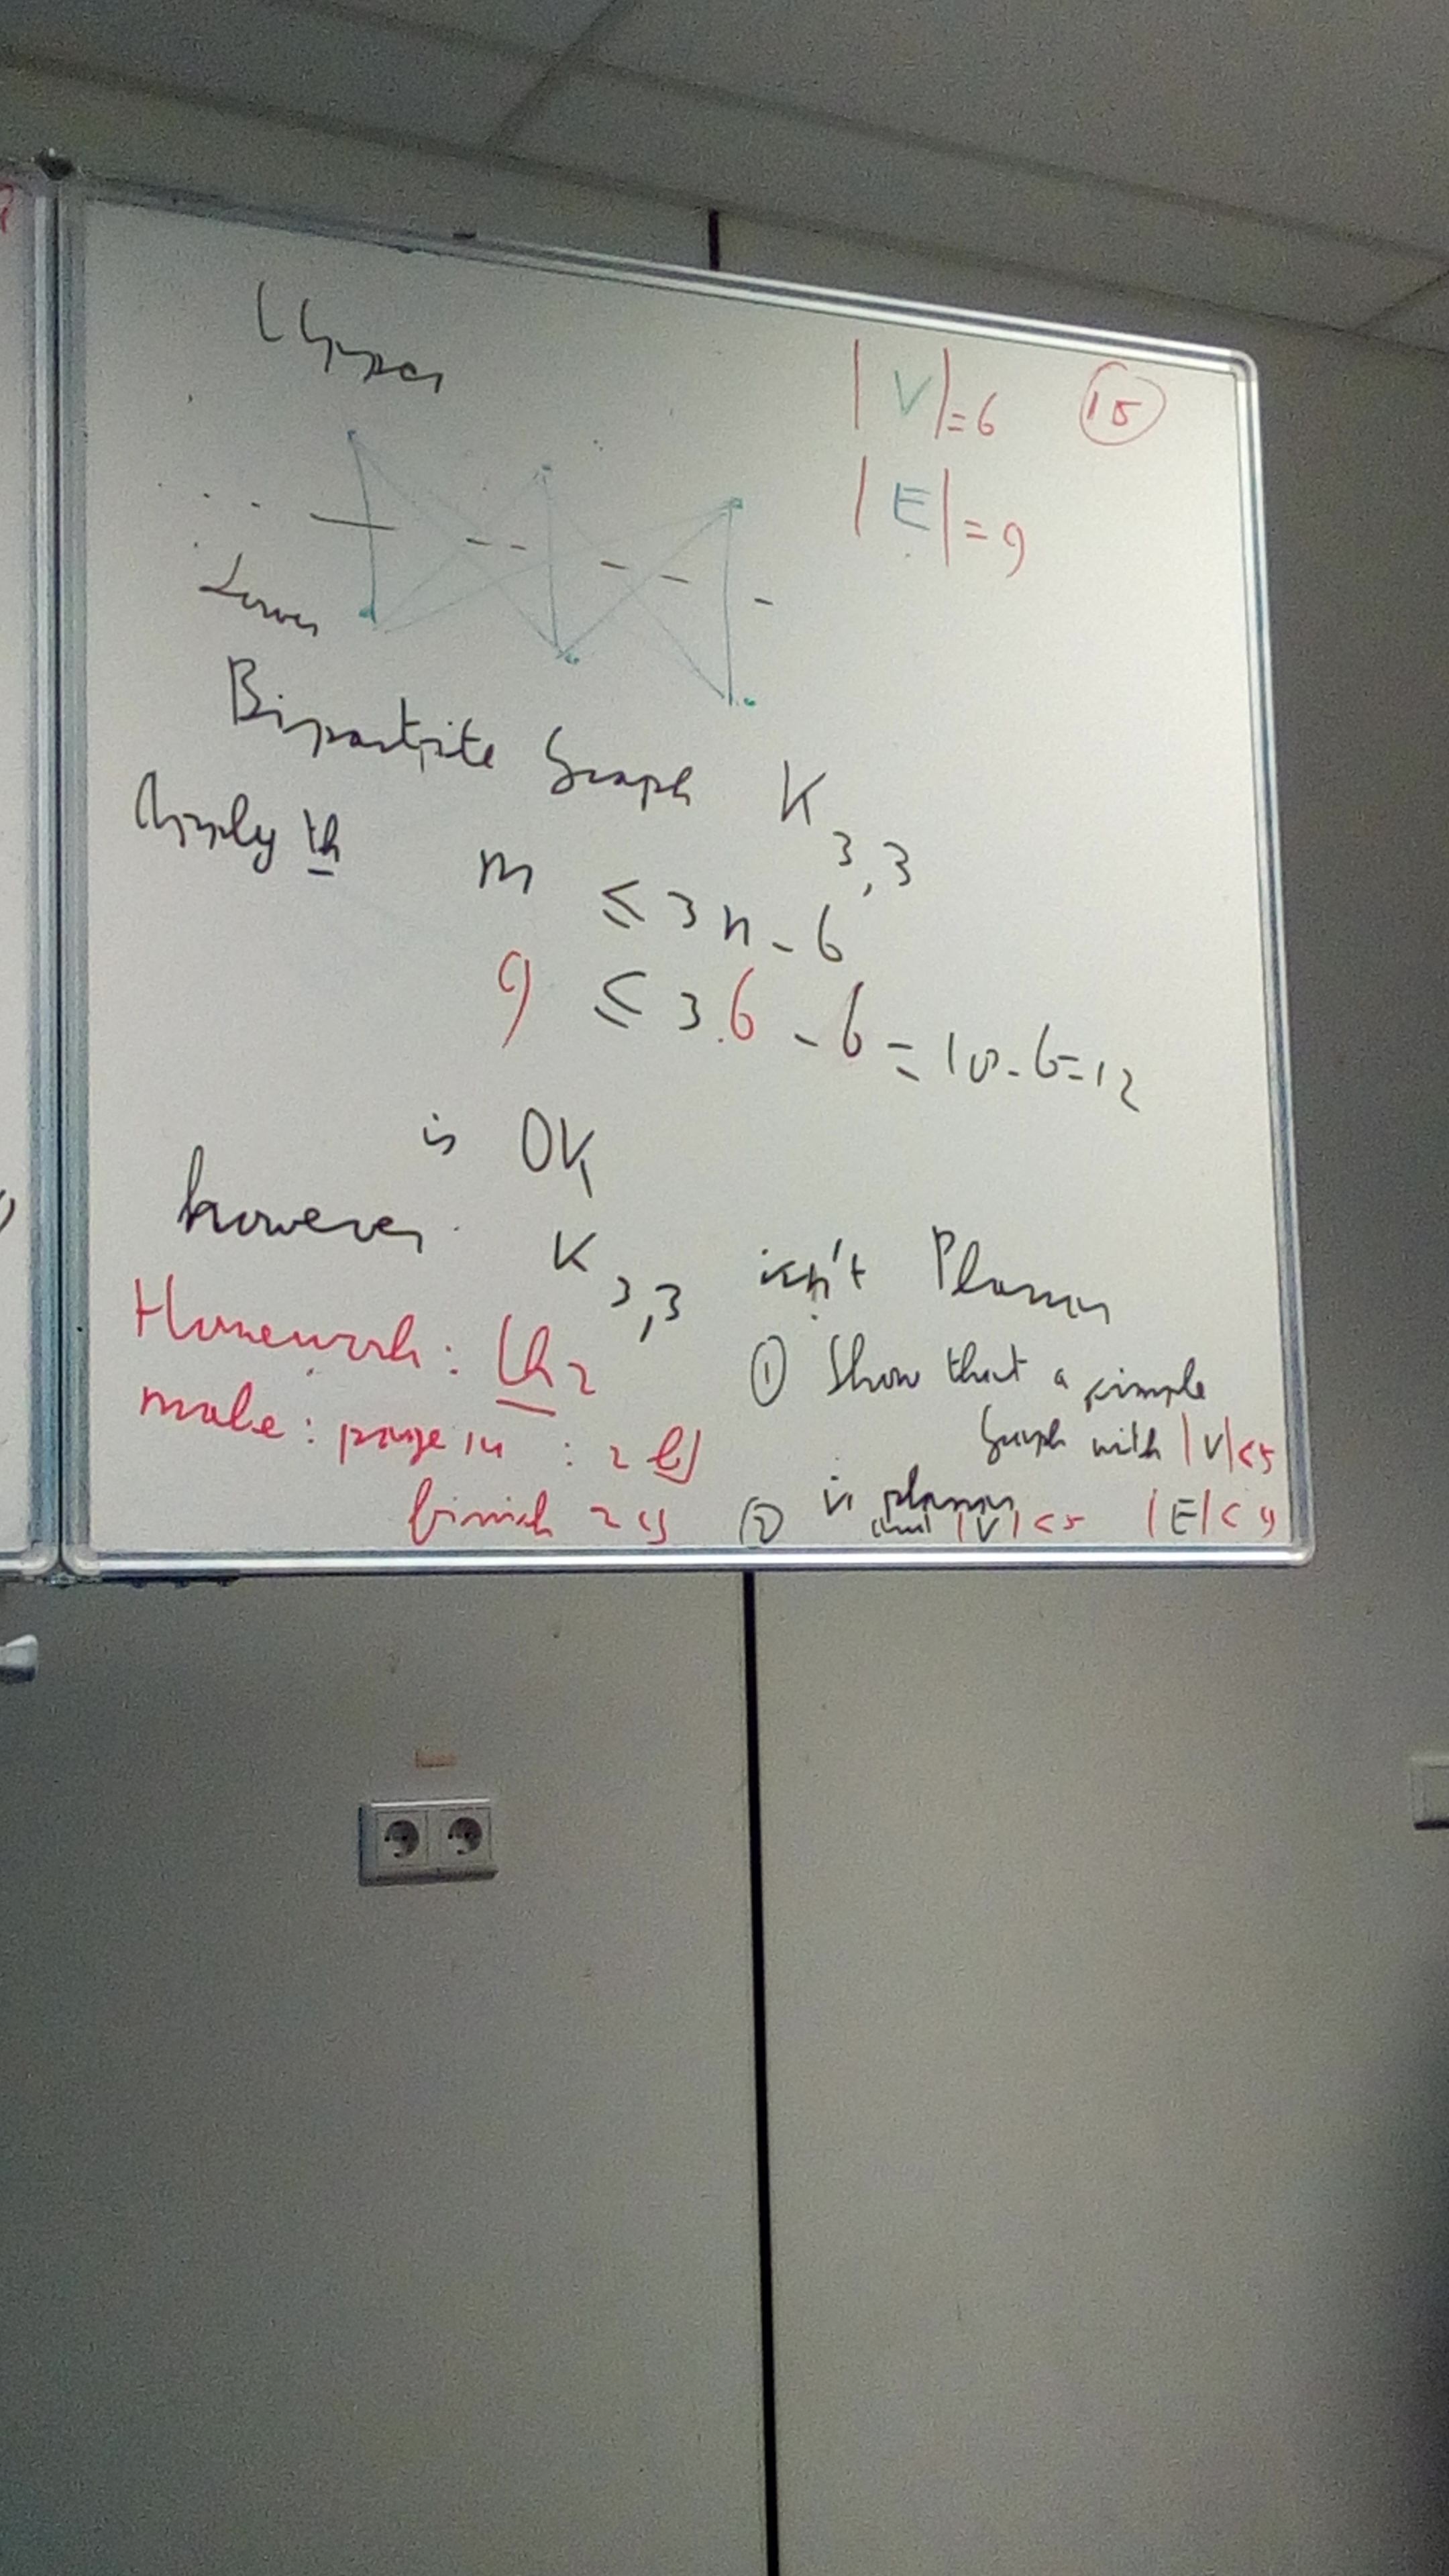 Upper
|V|=6 15
|E|=9
Lower
Bipartite Graph K3,3
Apply th m ≤ 3n-6
9 ≤ 3.6-6=18-6=12
is OK
however K3,3 isn't Planar
Homework: Ch2
make: page 14 : 2
finish 2
① Show that a simple
Graph with |V|<5
is planar
② and |V|<5 |E|<9